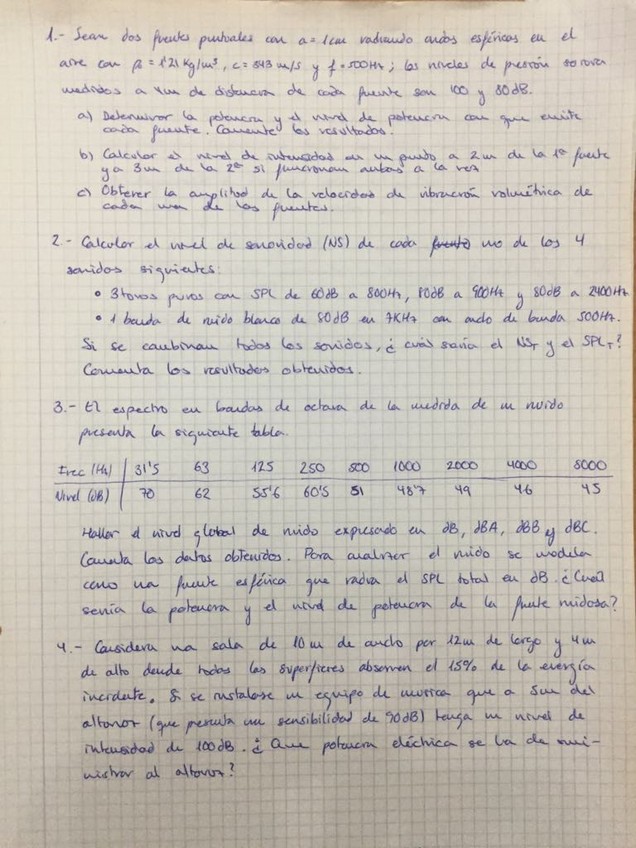 1.- Sean dos fuentes puntuales con a = 1 cm radiando ondas esféricas en el
aire con ρ₀ = 1'21 kg/m³, c = 343 m/s y f = 500Hz; los niveles de presión sonora
medidos a 4m de distancia de cada fuente son 100 y 80dB.
a) Determinar la potencia y el nivel de potencia con que emite
cada fuente. Comente los resultados.
b) Calcular el nivel de intensidad en un punto a 2m de la 1ª fuente
y a 3m de la 2ª si funcionan ambas a la vez
c) Obtener la amplitud de la velocidad de vibración volumétrica de
cada una de las fuentes.
2.- Calcular el nivel de sonoridad (NS) de cada uno de los 4
sonidos siguientes:
• 3 tonos puros con SPL de 60dB a 800Hz, 80dB a 900Hz y 80dB a 2400Hz
• 1 banda de ruido blanco de 80dB en 7KHz con ancho de banda 500Hz.
Si se combinan todos los sonidos, ¿cuál sería el NS_T y el SPL_T?
Comenta los resultados obtenidos.
3.- El espectro en bandas de octava de la medida de un ruido
presenta la siguiente tabla.
Frec (Hz) | 31'5 63 125 250 500 1000 2000 4000 8000
Nivel (dB) | 70 62 55'6 60'5 51 48'7 49 46 45
Hallar el nivel global de ruido expresado en dB, dBA, dBB y dBC.
Comenta los datos obtenidos. Para analizar el ruido se modela
como una fuente esférica que radia el SPL total en dB. ¿Cuál
sería la potencia y el nivel de potencia de la fuente ruidosa?
4.- Considera una sala de 10m de ancho por 12m de largo y 4m
de alto donde todas las superficies absorven el 15% de la energía
incidente. Si se instalase un equipo de musica que a 5m del
altavoz (que presenta un sensibilidad de 90dB) tenga un nivel de
intensidad de 100dB. ¿Que potencia eléctrica se ha de sumi-
nistrar al altavoz?